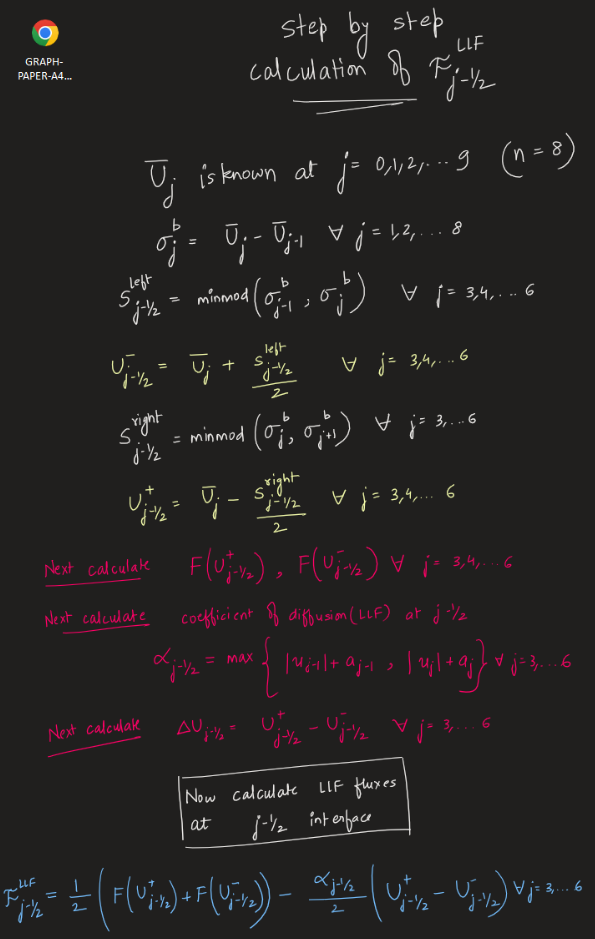 GRAPH-
PAPER-A4...
Step by step
calculation of F^{LLF}_{j-1/2}
Ū_j is known at j = 0,1,2,... 9 (n = 8)
σ_j^b = Ū_j - Ū_{j-1} ∀ j = 1,2,... 8
S^{left}_{j-1/2} = minmod(σ^b_{j-1}, σ^b_j) ∀ j = 3,4,... 6
U^-_{j-1/2} = Ū_j + S^{left}_{j-1/2}/2 ∀ j = 3,4,...6
S^{right}_{j-1/2} = minmod(σ^b_j, σ^b_{j+1}) ∀ j = 3,...6
U^+_{j-1/2} = Ū_j - S^{right}_{j-1/2}/2 ∀ j = 3,4,... 6
Next calculate F(U^+_{j-1/2}), F(U^-_{j-1/2}) ∀ j = 3,4,...6
Next calculate coefficient of diffusion (LLF) at j-1/2
α_{j-1/2} = max{|u_{j-1}| + a_{j-1}, |u_j| + a_j} ∀ j=3,...6
Next calculate ΔU_{j-1/2} = U^+_{j-1/2} - U^-_{j-1/2} ∀ j = 3,...6
Now calculate LLF fluxes
at j-1/2 interface
F^{LLF}_{j-1/2} = 1/2 (F(U^+_{j-1/2}) + F(U^-_{j-1/2})) - α_{j-1/2}/2 (U^+_{j-1/2} - U^-_{j-1/2}) ∀ j = 3,...6